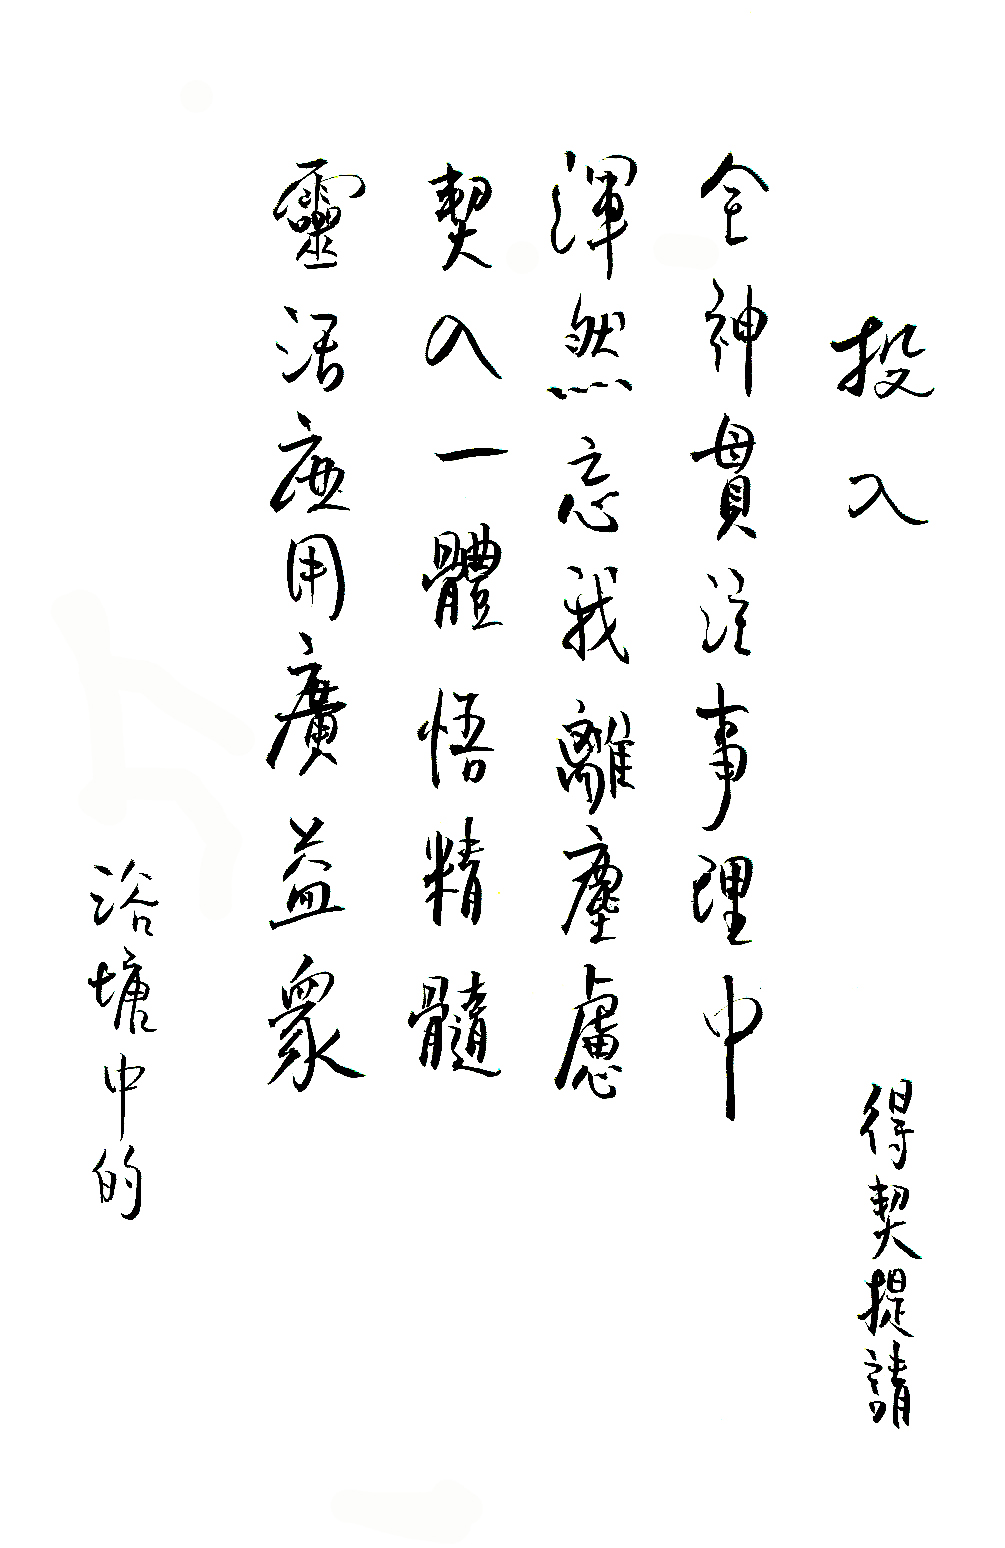 投入
得契提請
全神貫注事理中
渾然忘我離塵慮
契入一體悟精髓
靈活應用廣益眾
浴塘中的